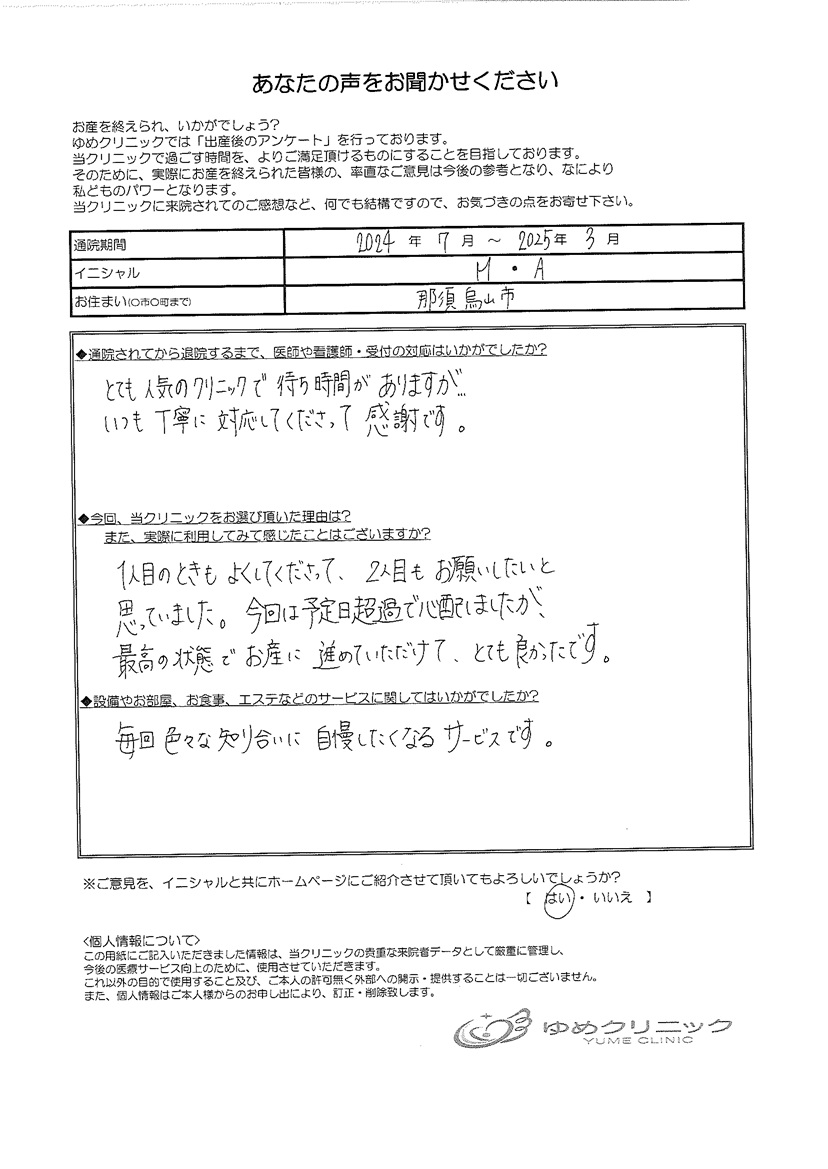 あなたの声をお聞かせください
お産を終えられ、いかがでしょう?
ゆめクリニックでは「出産後のアンケート」を行っております。
当クリニックで過ごす時間を、よりご満足頂けるものにすることを目指しております。
そのために、実際にお産を終えられた皆様の、率直なご意見は今後の参考となり、なにより
私どものパワーとなります。
当クリニックに来院されてのご感想など、何でも結構ですので、お気づきの点をお寄せ下さい。
通院期間 2024 年 7 月 ～ 2025年 3 月
イニシャル M ・ A
お住まい(〇市〇町まで) 那須烏山市
◆通院されてから退院するまで、医師や看護師・受付の対応はいかがでしたか?
とても人気のクリニックで待ち時間がありますが…
いつも丁寧に対応してくださって感謝です。
◆今回、当クリニックをお選び頂いた理由は?
また、実際に利用してみて感じたことはございますか?
1人目のときもよくしてくださって、2人目もお願いしたいと
思っていました。今回は予定日超過で心配しましたが、
最高の状態でお産に進めていただけて、とても良かったです。
◆設備やお部屋、お食事、エステなどのサービスに関してはいかがでしたか?
毎回色々な知り合いに自慢したくなるサービスです。
※ご意見を、イニシャルと共にホームページにご紹介させて頂いてもよろしいでしょうか?
【 はい ・ いいえ 】
<個人情報について>
この用紙にご記入いただきました情報は、当クリニックの貴重な来院者データとして厳重に管理し、
今後の医療サービス向上のために、使用させていただきます。
これ以外の目的で使用すること及び、ご本人の許可無く外部への開示・提供することは一切ございません。
また、個人情報はご本人様からのお申し出により、訂正・削除致します。
ゆめクリニック
YUME CLINIC